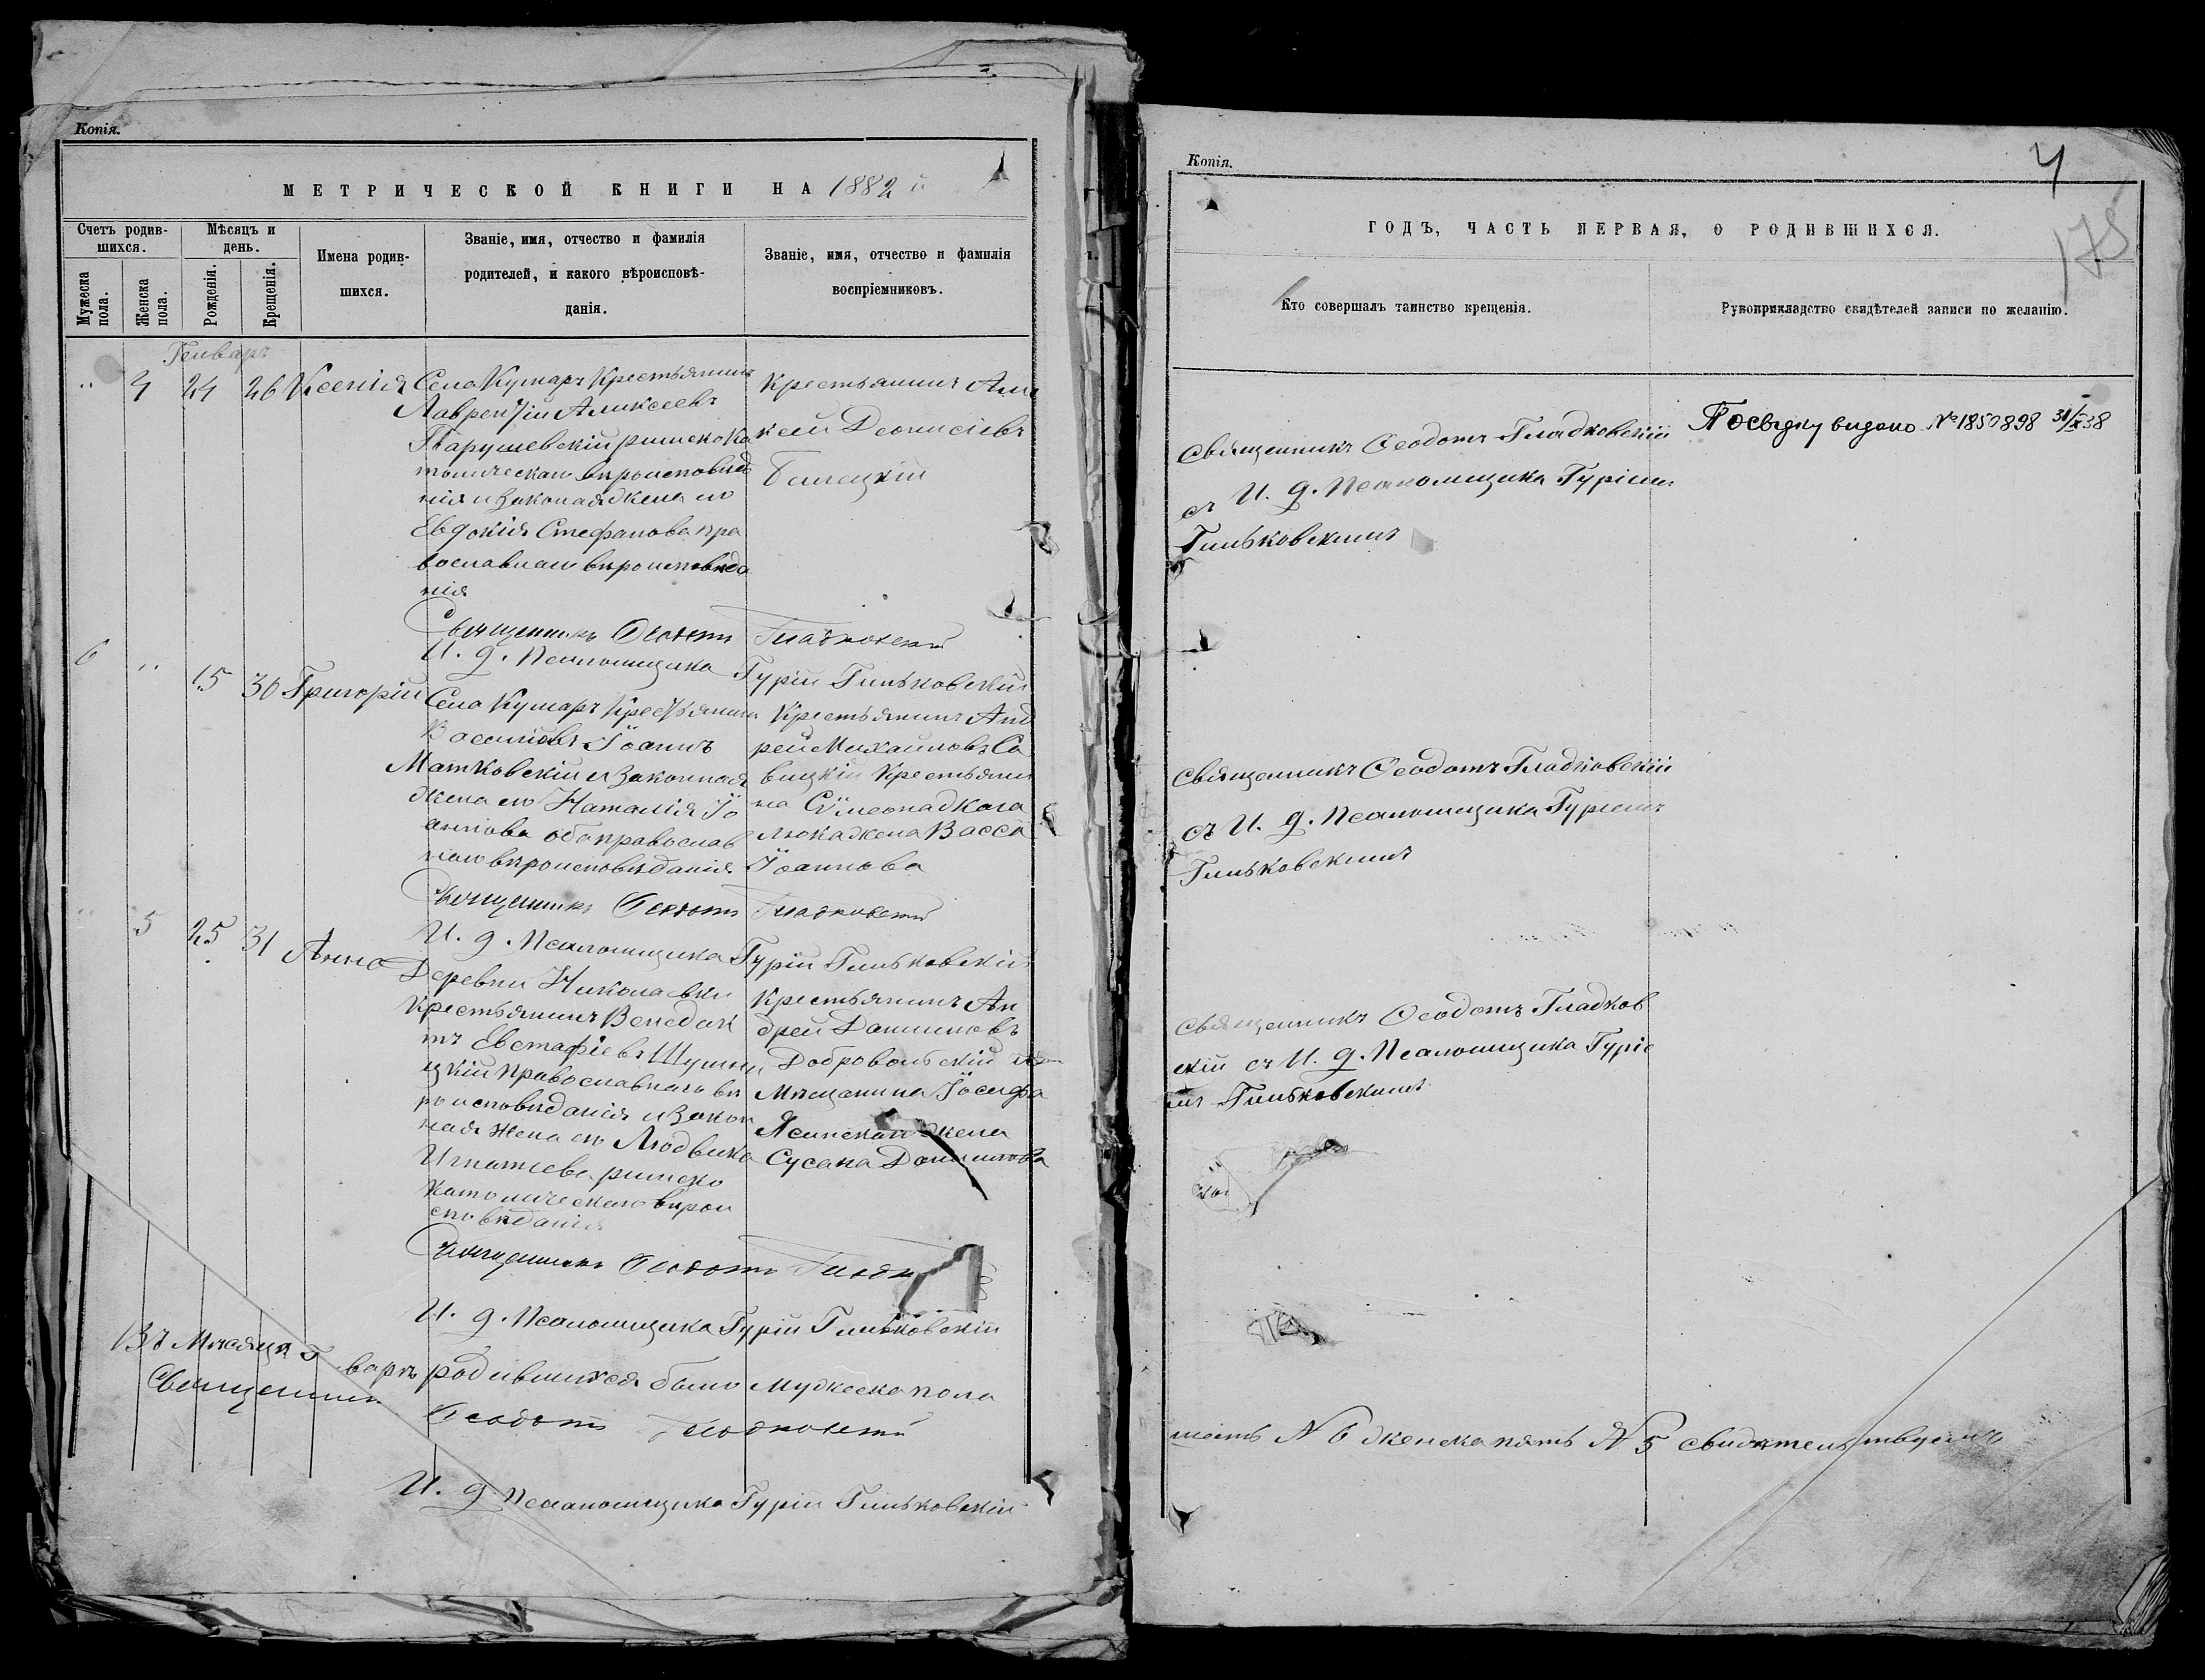 Копія.
МЕТРИЧЕСКОЙ КНИГИ НА 1882 й
Счетъ родив-
шихся.
Мѣсяцъ и
день.
Имена родив-
шихся.
Званіе, имя, отчество и фамилія
родителей, и какого вѣроисповѣ-
данія.
Званіе, имя, отчество и фамилія
воспріемниковъ.
Мужеска
пола.
Женска
пола.
Рожденія.
Крещенія.
Генварь
4 24 26 Ксенія
Села Кумаръ Крестьянинъ
Лаврентій Аликсеевъ
Тарушевскій римскока
толическаго вѣроисповѣда
нія и Законая жена его
Евдокія Стефанова пра
вославнаго вѣроисповѣда
нія
Крестьянинъ Але
ксѣй Деонисіевъ
Священникъ Ѳеодотъ Гладковскій
И. д. Псаломщика Гурій Гиньковскій
6 15 30 Григорій
Села Кумаръ Крестьянинъ
Василіевъ Іоаннъ
Матковскій и Законная
жена его Наталія Іо
аннова оба православ
наго вѣроисповѣданія
Крестьянинъ Анд
рей Михаиловъ Са
вицкій Крестьяни
на Сѵмеона
жена Васса
Іоаннова
Священникъ Ѳеодотъ Гладковскій
И. д. Псаломщика Гурій Гиньковскій
5 25 31 Анна
Деревни Николаевки
Крестьянинъ Бенедик
тъ Евстафіевъ
цкій Православнаго вѣ
роисповѣданія и Закон
ная жена его Людвика
Игнатіева римско
католическаго вѣрои
сповѣданія
Крестьянинъ Ан
дрей Даниловъ
Добровольскій
Мѣщанина Іосифа
жена
Сусана Данилова
Священникъ Ѳеодотъ
И. д. Псаломщика Гурій Гиньковскій
Въ Мѣсяцѣ Г варѣ родившихся было мужеска пола
Священник Ѳеодотъ Гладковскій
И. д. Псаломщика Гурій Гиньковскій
Копія.
4
175
ГОДЪ, ЧАСТЬ ПЕРВАЯ, О РОДИВШИХСЯ.
Кто совершалъ таинство крещенія.
Рукоприкладство свидѣтелей записи по желанію.
Священникъ Ѳеодотъ Гладковскій
съ И. д. Псаломщика Гуріемъ
Гиньковскимъ
Посвідку видано № 1850898 31/X 38
Священникъ Ѳеодотъ Гладковскій
съ И. д. Псаломщика Гуріемъ
Гиньковскимъ
Священникъ Ѳеодотъ Гладков
скій съ И. д. Псаломщика Гуріе
мъ Гиньковскимъ
шесть № 6 женска пять № 5 свидѣтельствуемъ